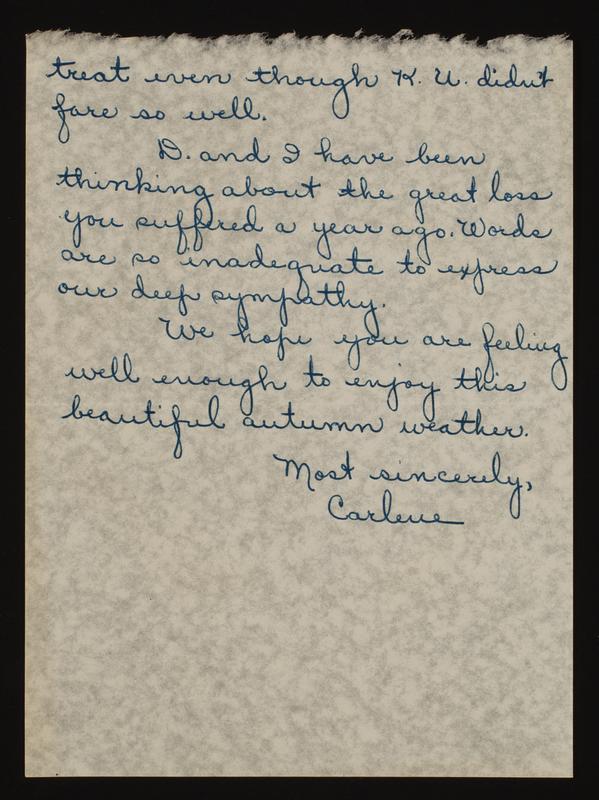 treat even though K. U. didn't
fare so well.
D. and I have been
thinking about the great loss
you suffered a year ago. Words
are so inadequate to express
our deep sympathy.
We hope you are feeling
well enough to enjoy this
beautiful autumn weather.
Most sincerely,
Carlene